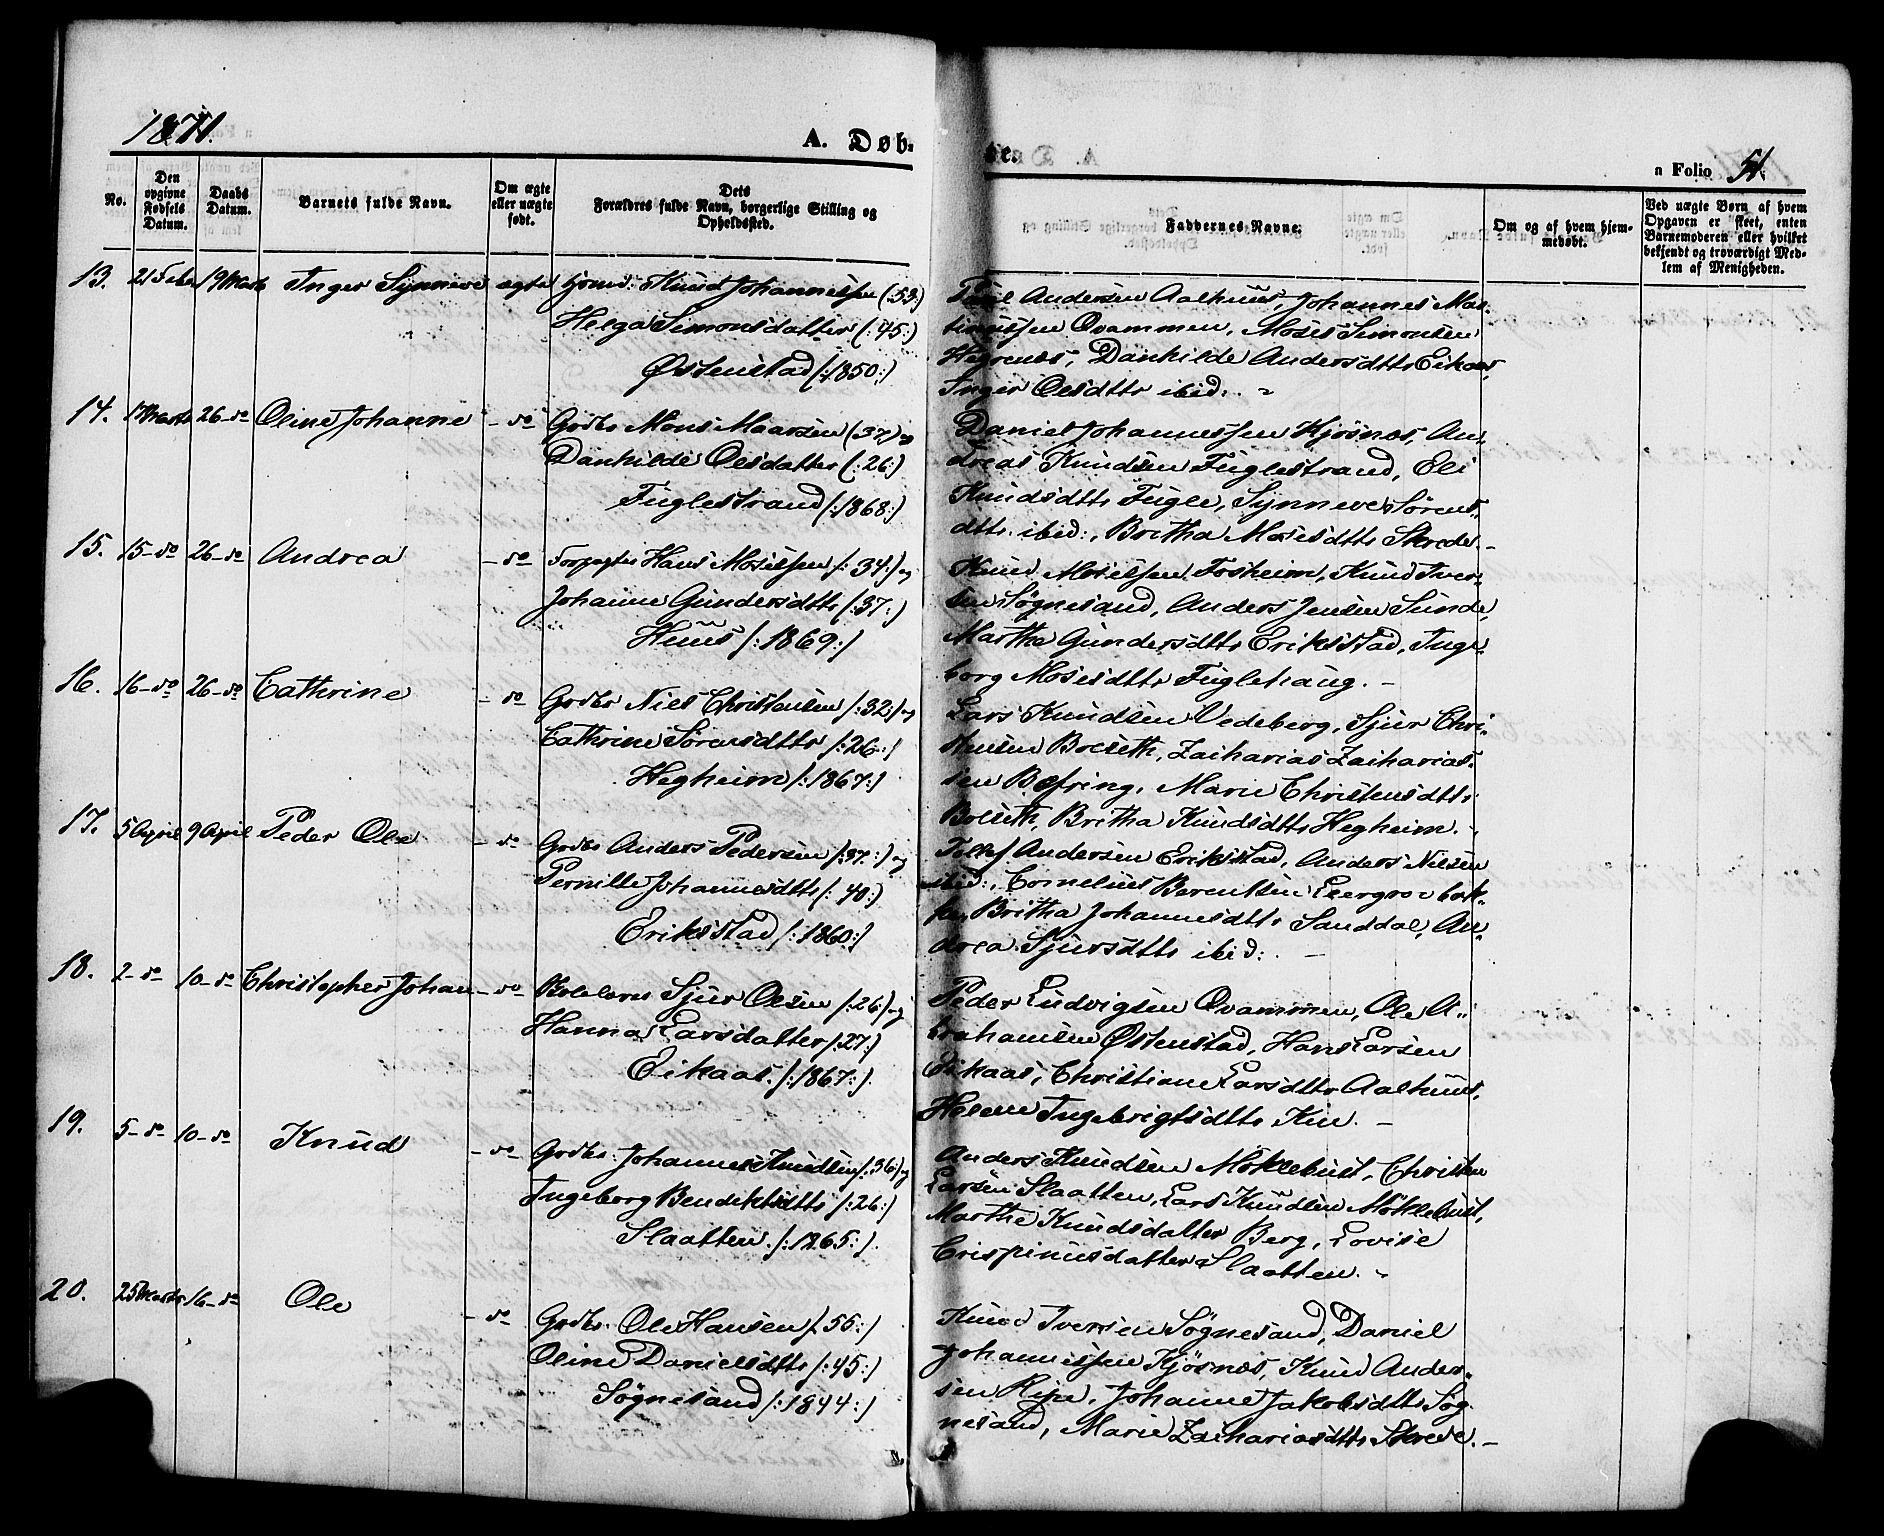 1871.
A. Døb-
te.
n Folio 51.
No.
Den opgivne Fødsels Datum.
Daabs Datum.
Barnets fulde Navn.
Om ægte eller uægte født.
Dets Forældres fulde Navn, borgerlige Stilling og Opholdssted.
Faddernes Navne.
Om og af hvem hjemmedøbt.
Ved uægte Børn af hvem Opgaven er skeet, enten Barnemoderen eller hvilket bekjendt og troværdigt Medlem af Menigheden.
13. 21 Febr 19 Marts Inger Synneve ægte Knud Johannessen (:53:)
Helga Simonsdatter (:45:)
Østenstad (:1850:)
Andersen Aalhuus, Johannes Mar-
tinussen Qvammen, Moses Simonsen
Hegrenes, Dankilde Andersdttr Eikaas,
Inger Olesdttr ibid: -
14. 17 Marts 26-do Oline Johanne - do Grdbr Mons Maarsen (37) og
Dankilde Olesdatter (:26:)
Fuglestrand (:1868:)
Daniel Johannessen Kjøsnes, An-
dreas Knudsen Fuglestrand, Eli
Knudsdttr Fugle, Synneve Sørens-
dttr ibid:, Britha Mosesdttr Skrede. -
15. 15-do 26-do Andrea - do Forpagter Hans Mosessen (:34:) og
Johanne Gundersdttr (:37:)
Huus (:1869:)
Knud Mosessen Fosheim, Knud Iver-
sen Søgnesand, Anders Jensen Sunde,
Marthe Gundersdttr Eriksstad, Inge-
borg Mosesdttr Fuglehaug. -
16. 16-do 26-do Cathrine - do Grdbr Niels Christensen (:32:) og
Cathrine Sørensdttr (:26:)
Hegheim (:1867:)
Lars Knudsen Vedeberg, Sjur Chri-
stensen Bolseth, Zacharias Zacharias-
sen Befring, Marie Christensdttr
Bolseth, Britha Knudsdttr Hegheim. -
17. 5 April 9 April Peder Ole - do Grdbr Anders Pedersen (:37:) og
Pernille Johannesdttr (:40:)
Eriksstad (:1860:)
Tollef Andersen Eriksstad, Anders Nielsen
ibid:, Cornelius Berentsen
Britha Johannesdttr Sanddal, An-
drea Sjursdttr ibid: -
18. 2-do 10-do Christopher Johan - do Sjur Olsen (:26:) og
Hanna Larsdatter (:27:)
Eikaas. (:1867:).
Peder Ludvigsen Qvammen, Ole A-
brahamsen Østenstad, Hans Larsen
Eikaas, Christiane Larsdttr Aalhuus,
Helene Ingebrigtsdttr -
19. 5-do 10-do Knud - do Grdbr: Johannes Knudsen (:36:) og
Ingeborg Bendiktsdttr (:26:)
Slaatten. (:1865:).
Anders Knudsen Møklebust, Christen
Larsen Slaatten, Lars Knudsen Møklebust,
Marthe Knudsdatter Berg, Lovise
Crispinusdatter Slaatten. -
20. 25 Marts 16-do Ole - do Grdbr. Ole Hansen (:55:)
Oline Danielsdttr (:45:)
Søgnesand (:1844:)
Knud Iversen Søgnesand, Daniel
Johannessen Kjøsnes, Knud Ander-
sen Ripe, Johanne Jakobsdttr Søg-
nesand, Marie Zachariasdttr Skrede. -